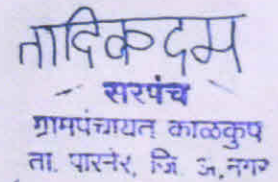 तादिकदम
सरपंच
ग्रामपंचायत काळकुप
ता. पारनेर, जि. अ.नगर